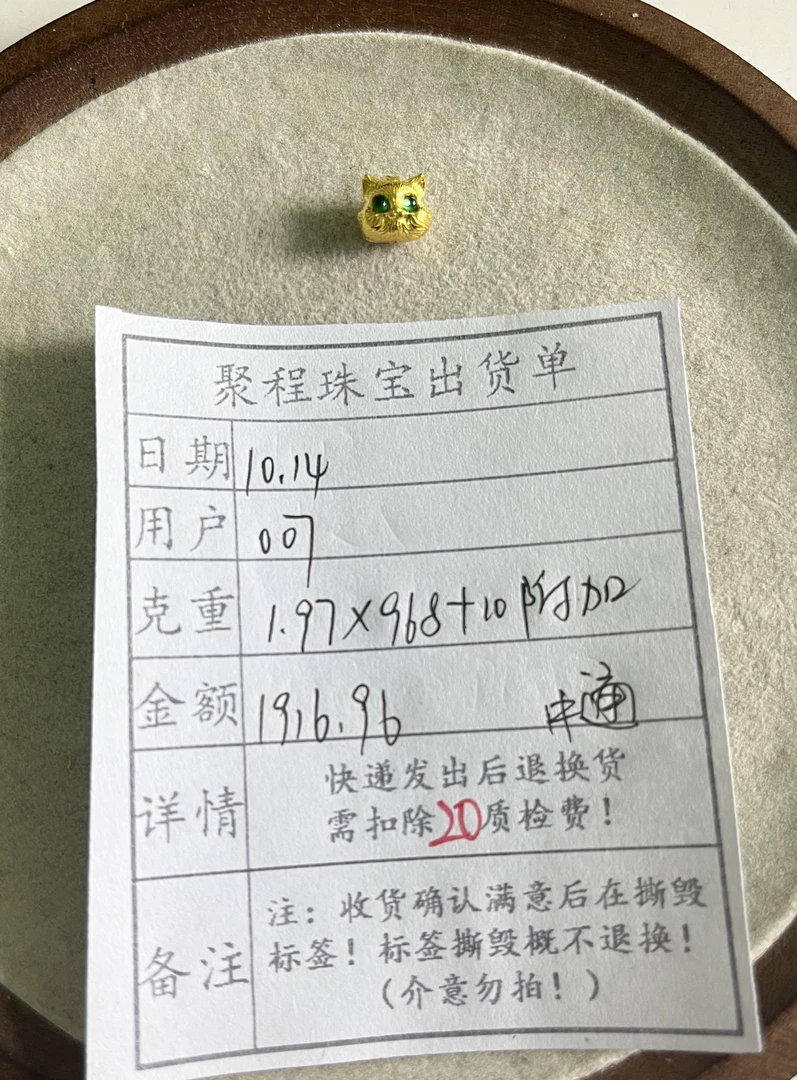 聚程珠宝出货单
日期 10.14
用户 007
克重 1.97×968+10附加
金额 1916.96 中通
详情 快递发出后退换货
需扣除20质检费！
备注 注：收货确认满意后在撕毁
标签！标签撕毁概不退换！
（介意勿拍！）